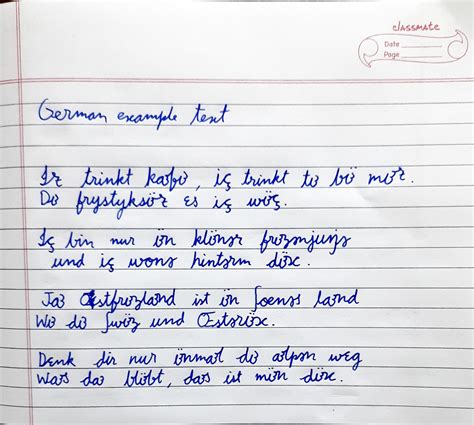 classmate
Date
Page
German example text
Iz trinkt kafo, iς trinkt to bö mör.
Do frystyksör es iς wöς.
Iς bin nur ön klönər frozənjunə
und iς wonə hintərm döx.
Jao Œstfrozland ist ön ʃoenəs land
Wo do ʃwöz und Œstəröx.
Denk dir nur önmal do alpən weg
Was da blöbt, das ist mön döx.